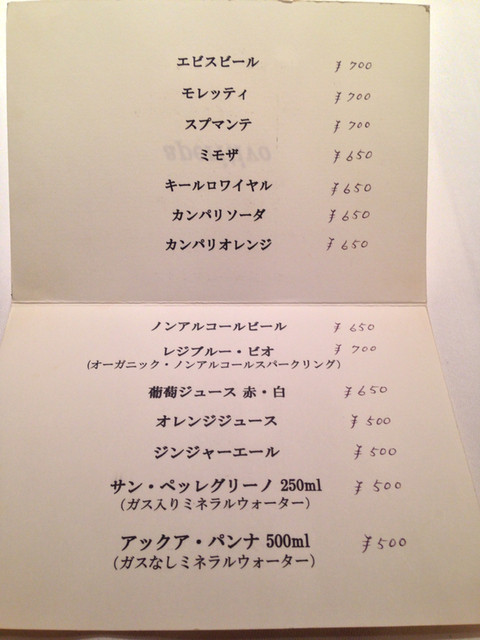 エビスビール ¥700
モレッティ ¥700
スプマンテ ¥700
ミモザ ¥650
キールロワイヤル ¥650
カンパリソーダ ¥650
カンパリオレンジ ¥650
ノンアルコールビール ¥650
レジブルー・ビオ ¥700
(オーガニック・ノンアルコールスパークリング)
葡萄ジュース 赤・白 ¥650
オレンジジュース ¥500
ジンジャーエール ¥500
サン・ペッレグリーノ 250ml ¥500
(ガス入りミネラルウォーター)
アックア・パンナ 500ml ¥500
(ガスなしミネラルウォーター)